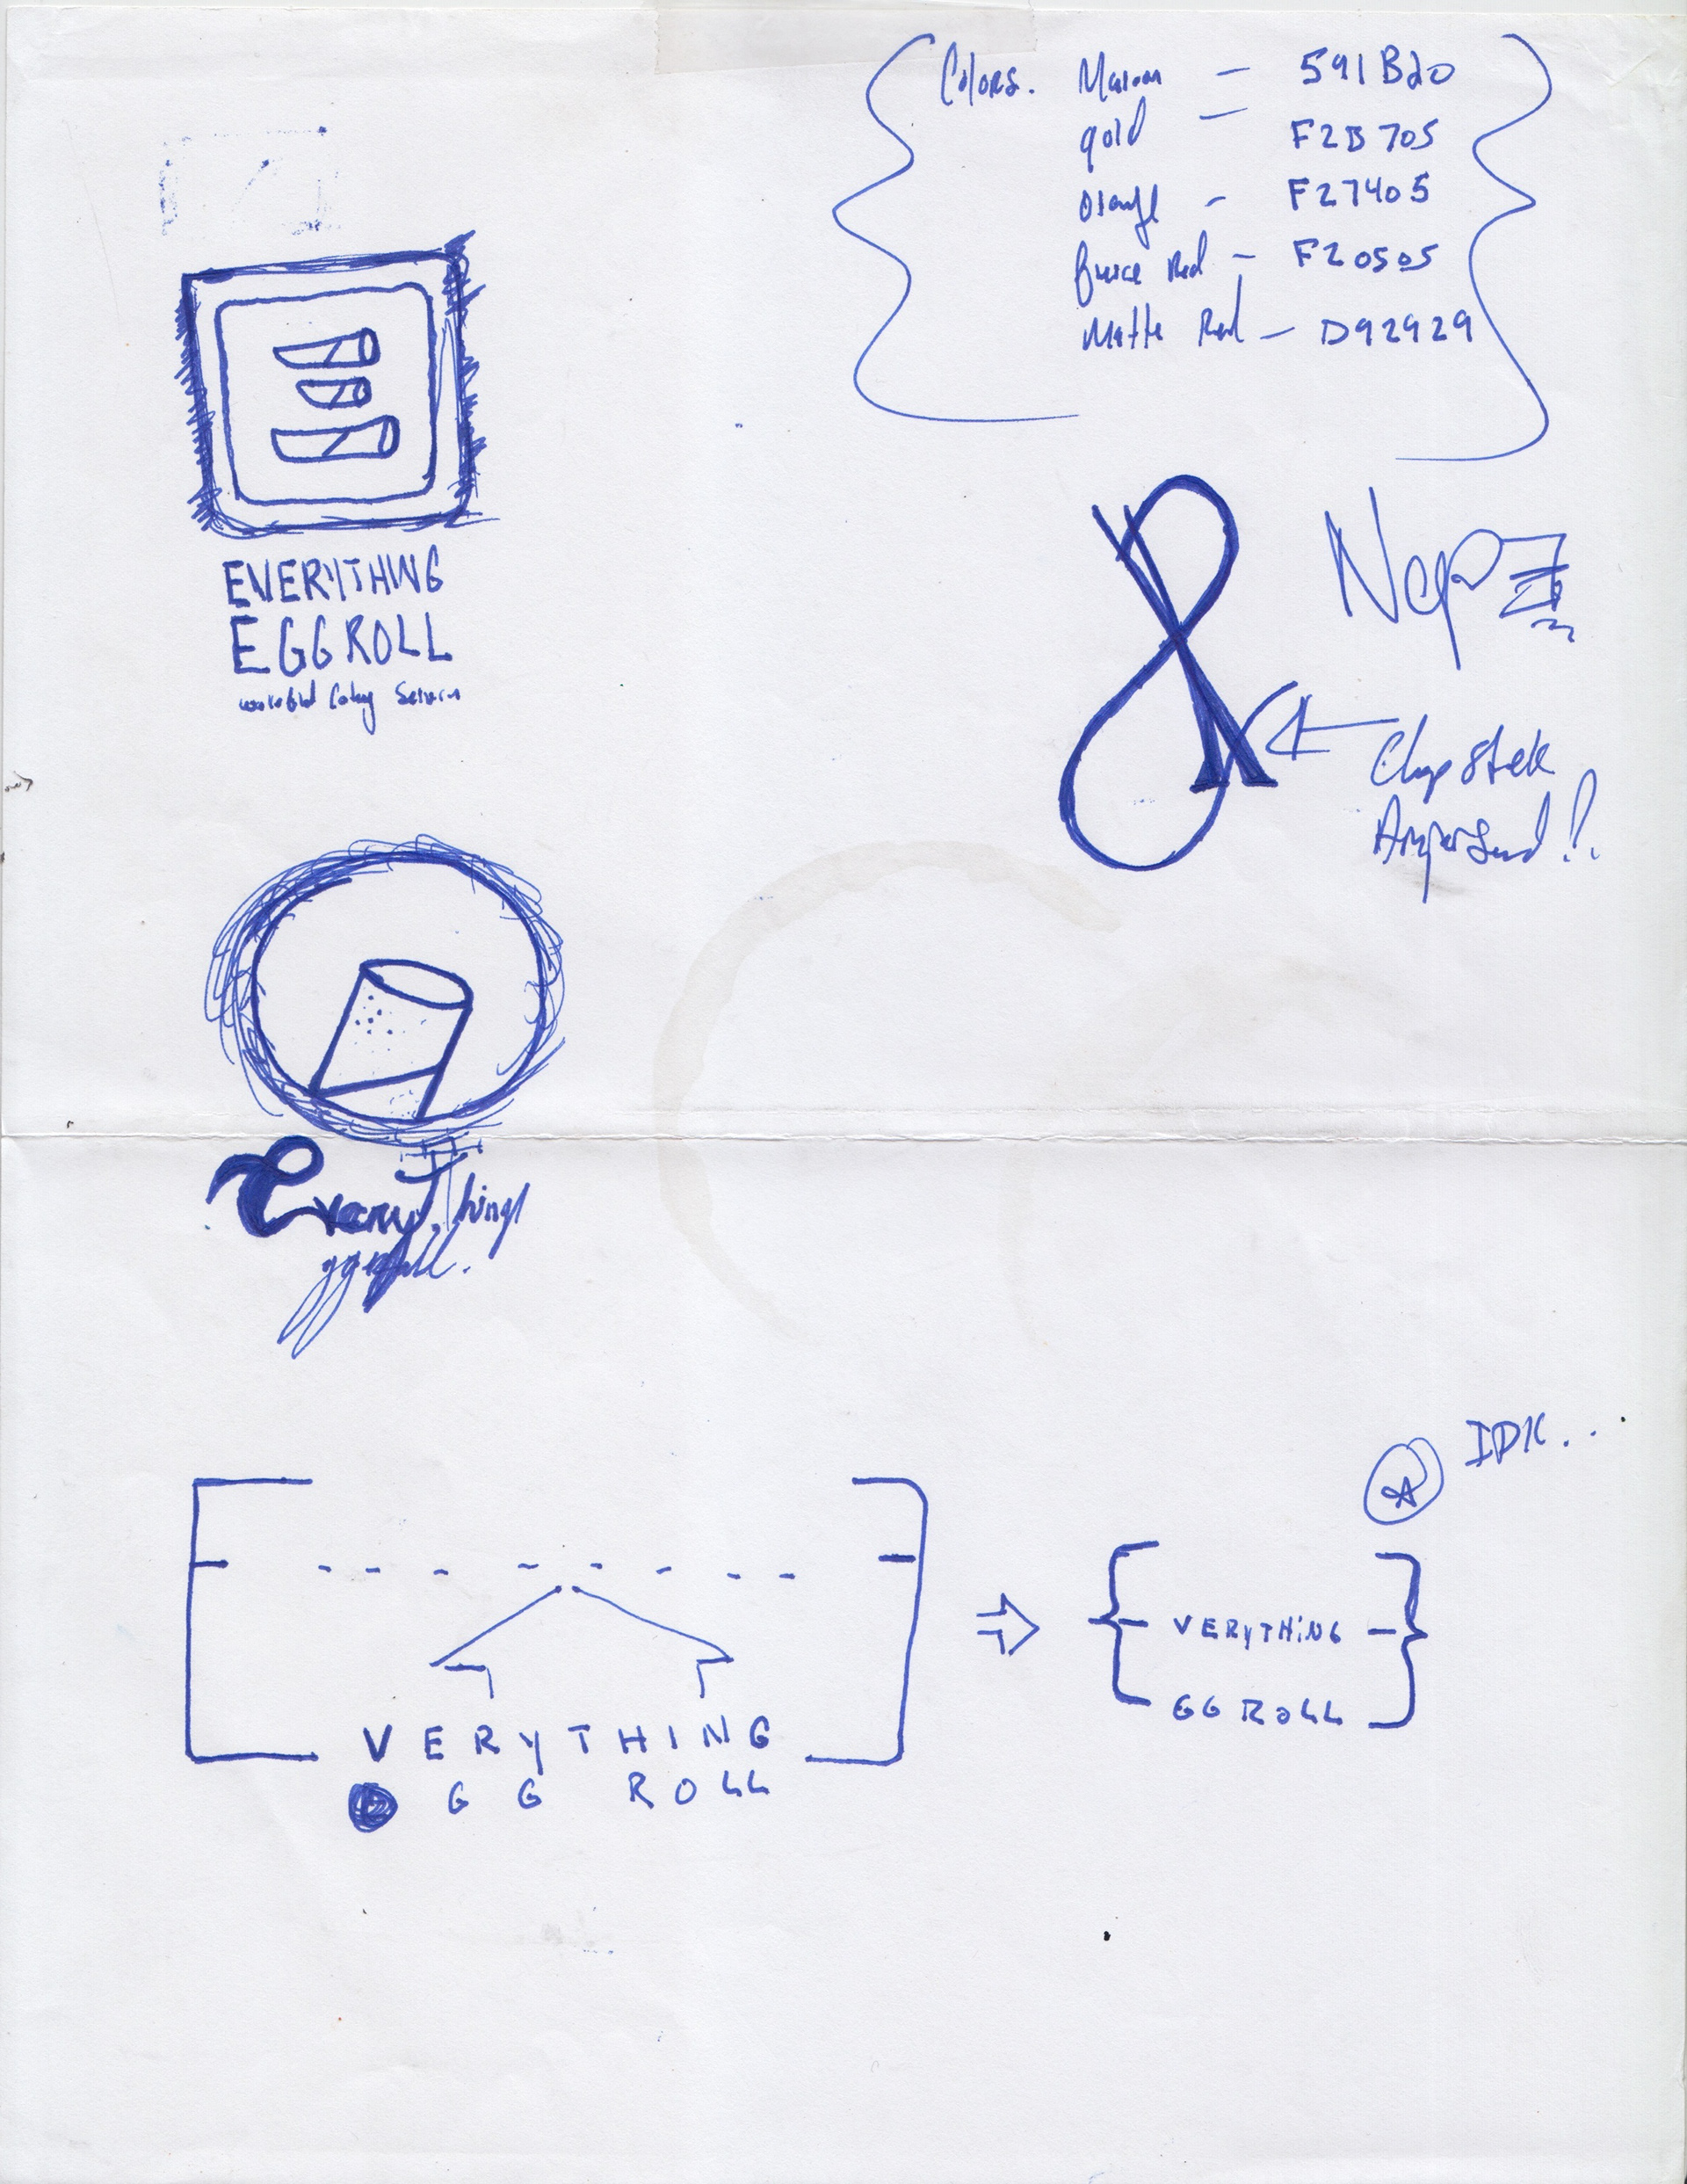 Colors. Maroon — 591B20
gold — F2B705
orange - F27405
fierce Red - F20505
Matte Red — D92929
EVERYTHING
EGGROLL
Chopstick
Ampersand!!
EveryThing
ggroll.
IDK...
VERYTHING
GG ROLL
VERYTHiNG
GG ROLL